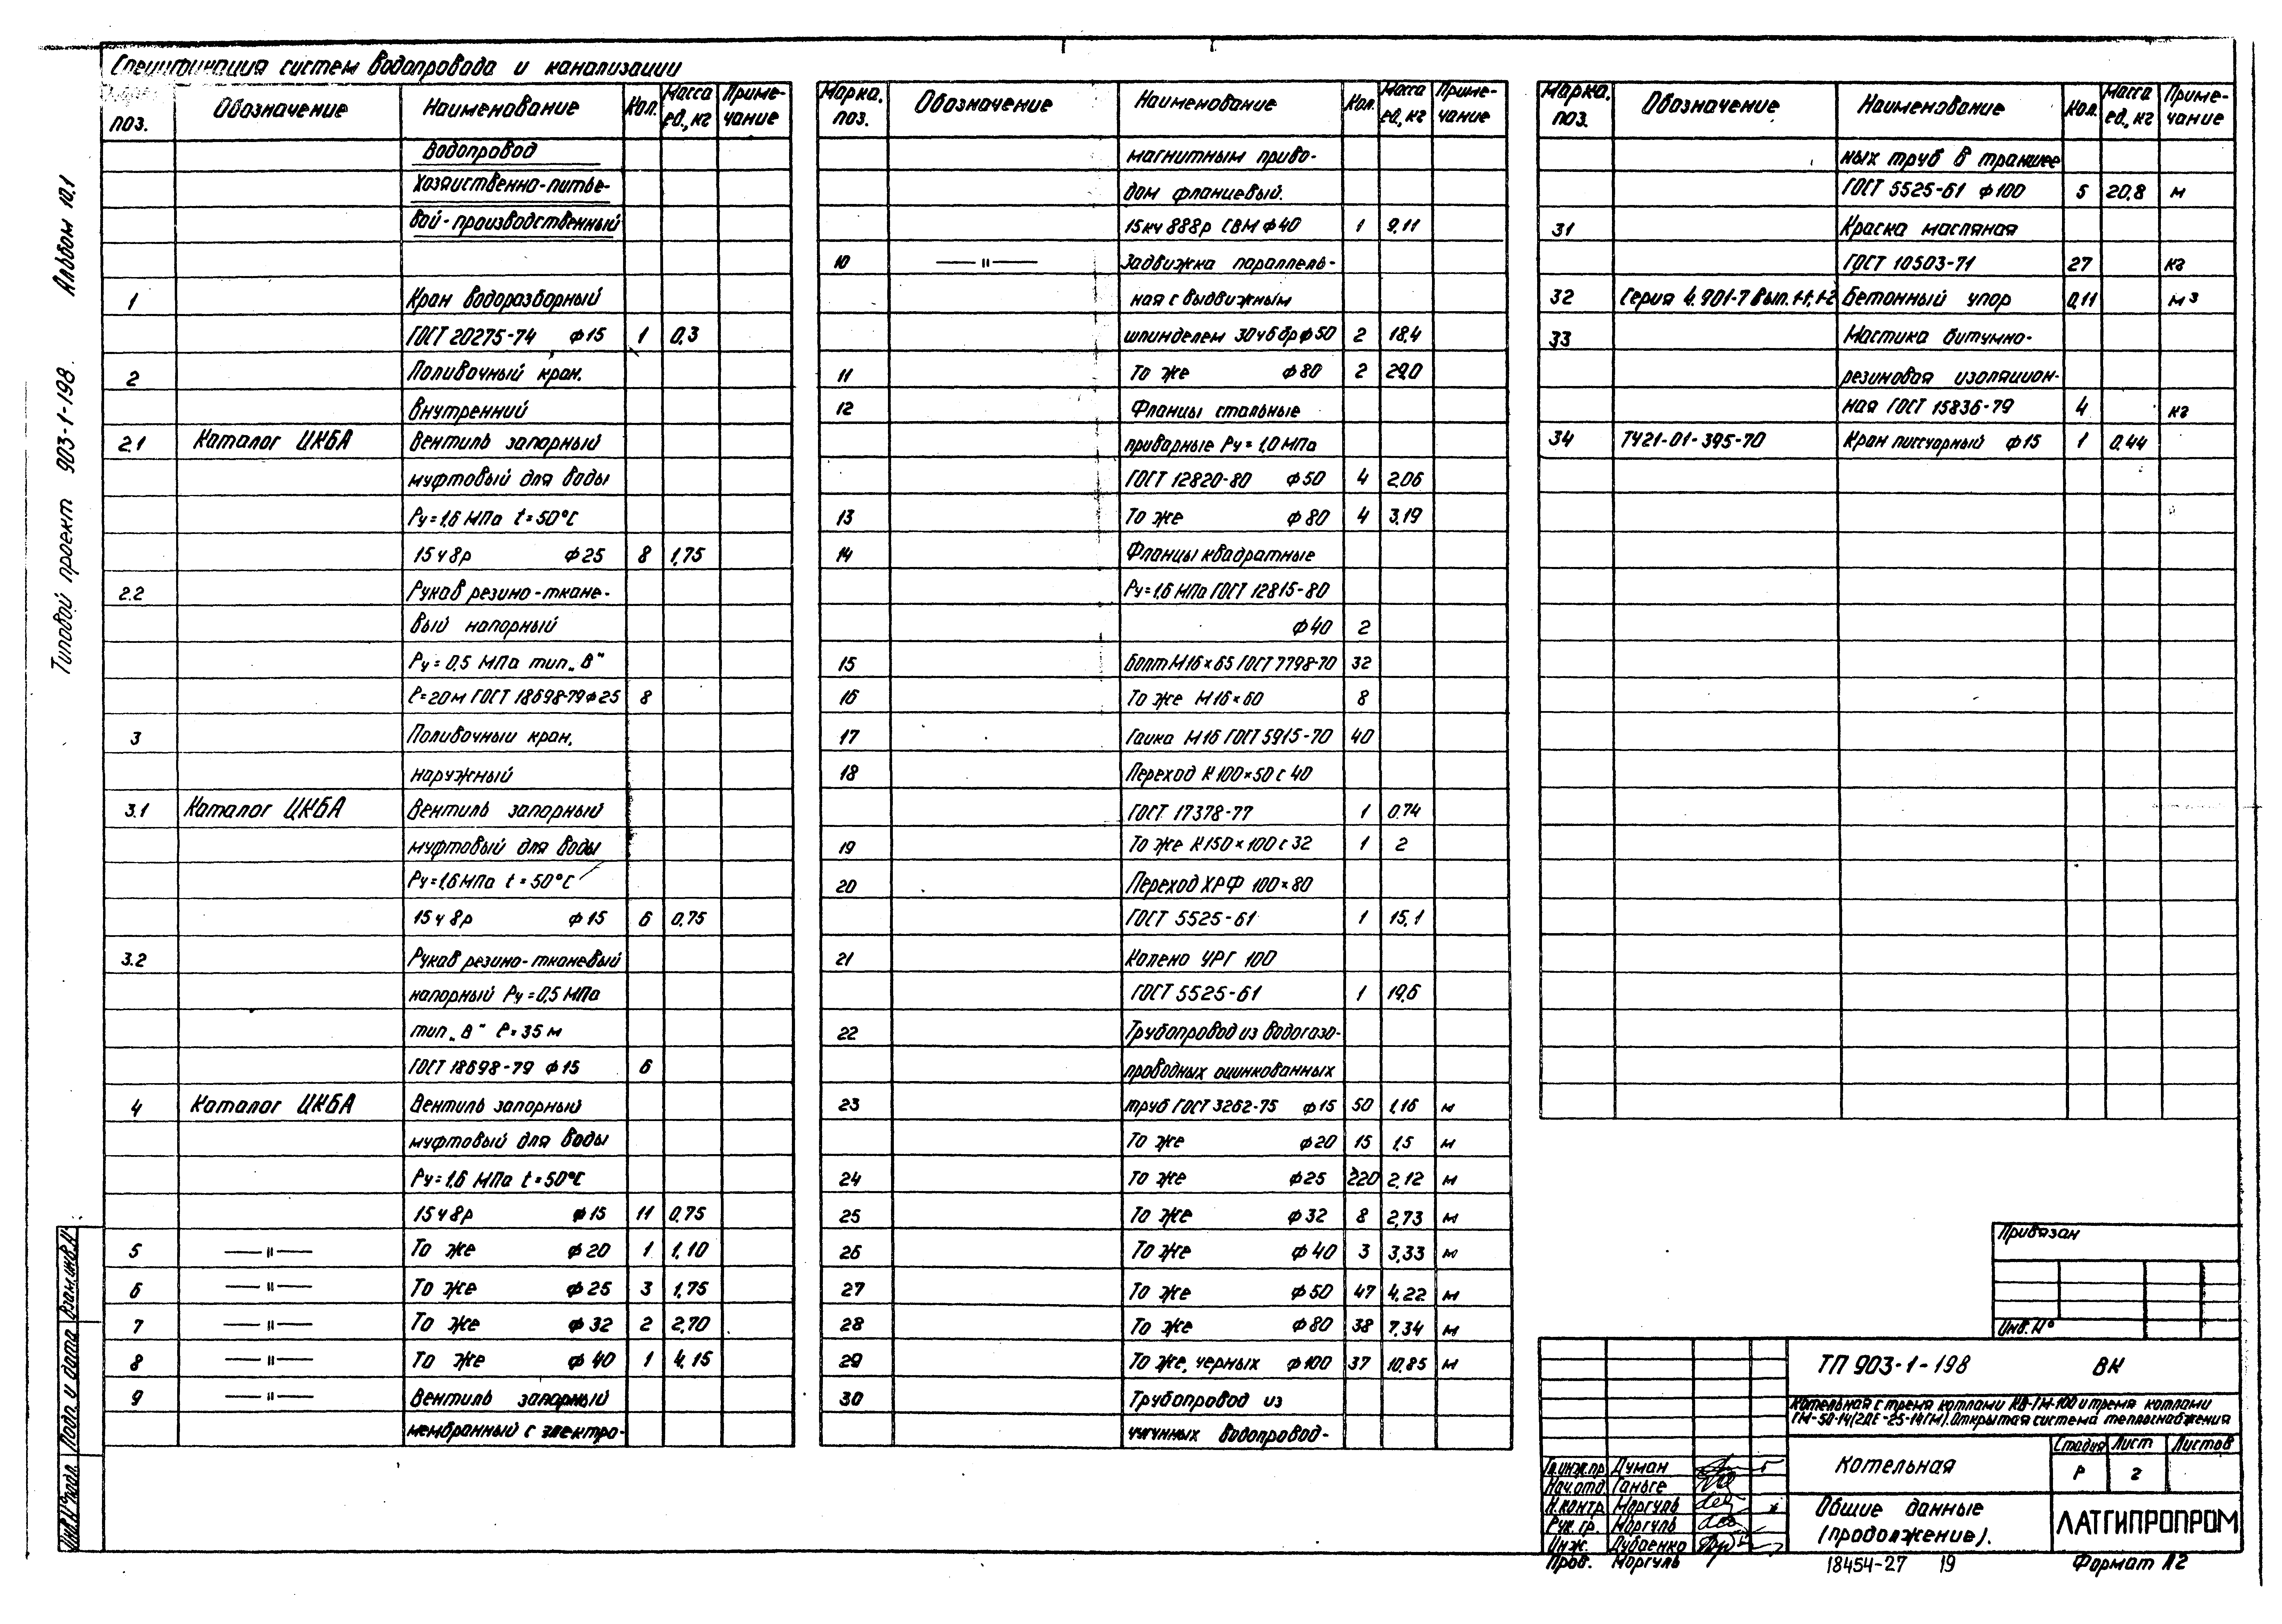 Спецификация систем водопровода и канализации
Марка, поз. Обозначение Наименование Кол. Масса ед., кг Примечание
Водопровод
хозяйственно-питье-
вой-производственный
1 Кран водоразборный
ГОСТ 20275-74 ф15 1 0,3
2 Поливочный кран,
внутренний
2.1 Каталог ЦКБА Вентиль запорный
муфтовый для воды
Ру=1,6 МПа t=50°С
15ч8р ф25 8 1,75
2.2 Рукав резино-ткане-
вый напорный
Ру=0,5 МПа тип „В"
ℓ=20м ГОСТ 18698-79 ф25 8
3 Поливочный кран,
наружный
3.1 Каталог ЦКБА Вентиль запорный
муфтовый для воды
Ру=1,6 МПа t=50°С
15ч8р ф15 6 0,75
3.2 Рукав резино-тканевый
напорный Ру=0,5 МПа
тип „В" ℓ=35м
ГОСТ 18698-79 ф15 6
4 Каталог ЦКБА Вентиль запорный
муфтовый для воды
Ру=1,6 МПа t=50°С
15ч8р ф15 11 0,75
5 —"— То же ф20 1 1,10
6 —"— То же ф25 3 1,75
7 —"— То же ф32 2 2,70
8 —"— То же ф40 1 4,15
9 —"— Вентиль запорный
мембранный с электро-
Марка, поз. Обозначение Наименование Кол. Масса ед., кг Примечание
магнитным приво-
дом фланцевый.
15кч 888р СВМ ф40 1 9,11
10 —"— Задвижка параллель-
ная с выдвижным
шпинделем 30ч6бр ф50 2 18,4
11 То же ф80 2 29,0
12 Фланцы стальные
приварные Ру=1,0 МПа
ГОСТ 12820-80 ф50 4 2,06
13 То же ф80 4 3,19
14 Фланцы квадратные
Ру=1,6 МПа ГОСТ 12815-80
ф40 2
15 Болт М16×65 ГОСТ 7798-70 32
16 То же М16×60 8
17 Гайка М16 ГОСТ 5915-70 40
18 Переход К100×50 с 40
ГОСТ 17378-77 1 0,74
19 То же К150×100 с 32 1 2
20 Переход ХРФ 100×80
ГОСТ 5525-61 1 15,1
21 Колено УРГ 100
ГОСТ 5525-61 1 19,6
22 Трубопровод из водогазо-
проводных оцинкованных
23 труб ГОСТ 3262-75 ф15 50 1,16 м
То же ф20 15 1,5 м
24 То же ф25 220 2,12 м
25 То же ф32 8 2,73 м
26 То же ф40 3 3,33 м
27 То же ф50 47 4,22 м
28 То же ф80 38 7,34 м
29 То же, черных ф100 37 10,85 м
30 Трубопровод из
чугунных водопровод-
Марка, поз. Обозначение Наименование Кол. Масса ед., кг Примечание
ных труб в траншее
ГОСТ 5525-61 ф100 5 20,8 м
31 Краска масляная
ГОСТ 10503-71 27 кг
32 Серия 4.901-7 Вып. 1-1, 1-2 Бетонный упор 0,11 м3
33 Мастика битумно-
резиновая изоляцион-
ная ГОСТ 15836-79 4 кг
34 ТУ21-01-395-70 Кран писсуарный ф15 1 0,44
Типовой проект 903-1-198. Альбом 10.1
Инв.№подл. Подп. и дата Взам.инв.№
Привязан
Инв.№
ТП 903-1-198 ВК
Котельная с тремя котлами КВ-ГМ-100 и тремя котлами
ГМ-50-14(2ДЕ-25-14ГМ). Открытая система теплоснабжения
Котельная
Стадия Лист Листов
Р 2
Общие данные
(продолжение).
ЛАТГИПРОПРОМ
Гл.инж.пр. Думан
Нач.отд. Ганьге
Н.контр. Моргуль
Рук.гр. Моргуль
Инж. Дубаенко
Пров. Моргуль
18454-27 19 Формат А2